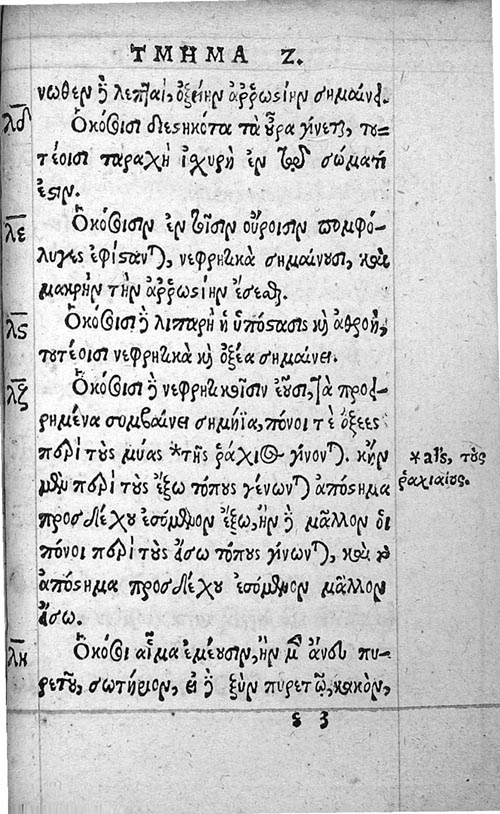 ΤΜΗΜΑ Ζ.
νωθεν ἢ λεπταὶ, ὀξείην ἀῤῥωστίην σημαίνει.
λδ Ὁκόσοισι διεστηκότα τὰ οὖρα γίνεται, του-
τέοισι ταραχὴ ἰσχυρὴ ἐν τῷ σώματί
ἐστιν.
λε Ὁκόσοισιν ἐν τοῖσιν οὔροισιν πομφό-
λυγες ἐφίστανται, νεφριτικὰ σημαίνουσι, καὶ
μακρὴν τὴν ἀῤῥωστίην ἔσεσθαι.
λς Ὁκόσοισι δὲ λιπαρὴ ἡ ὑπόστασις καὶ ἀθροὴ,
τουτέοισι νεφριτικὰ καὶ ὀξέα σημαίνει.
λζ Ὁκόσοισι δὲ νεφριτικοῖσιν ἐοῦσι, τὰ προει-
ρημένα συμβαίνει σημήϊα, πόνοι τὲ ὀξέες
περὶ τοὺς μύας *τῆς ῥάχιος γίνονται. κἢν
μὲν περὶ τοὺς ἔξω τόπους γένωνται ἀπόστημα
προσδέχου ἐσόμενον ἔξω, ἢν δὲ μᾶλλον οἱ
πόνοι περὶ τοὺς ἔσω τόπους γίνωνται, καὶ τὸ
ἀπόστημα προσδέχου ἐσόμενον μᾶλλον
ἔσω.
λη Ὁκόσοι αἷμα ἐμέουσιν, ἢν μὲν ἄνευ πυ-
ρετοῦ, σωτήριον, εἰ δὲ ξὺν πυρετῷ, κακὸν,
*αλς, τοὺς
ῥαχιαίους.
ε 3